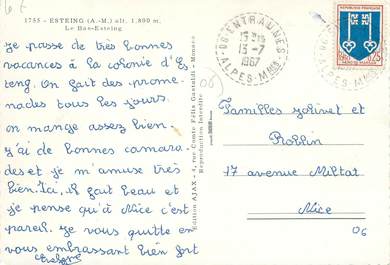 1755 - ESTEING (A.-M.) alt. 1.800 m.
Le Bas-Esteing
Je passe de très bonnes
vacances à la colonie d'Es
teng. On fait des prome-
nades tous les jours.
on mange assez bien.
j'ai de bonnes camara-
des et je m'amuse très
bien. Ici, il fait beau et
je pense qu'à Nice c'est
pareil. je vous quitte en
vous embrassant bien fort
Edition AJAX - 4, rue Comte Félix Gastaldi - Monaco
Reproduction Interdite
06 - ENTRAUNES
13-7
1967
ALPES-MMES
REPUBLIQUE FRANÇAISE
0,25
06
Familles Jolivet et
Robbin
17 avenue Miltat
Nice
06